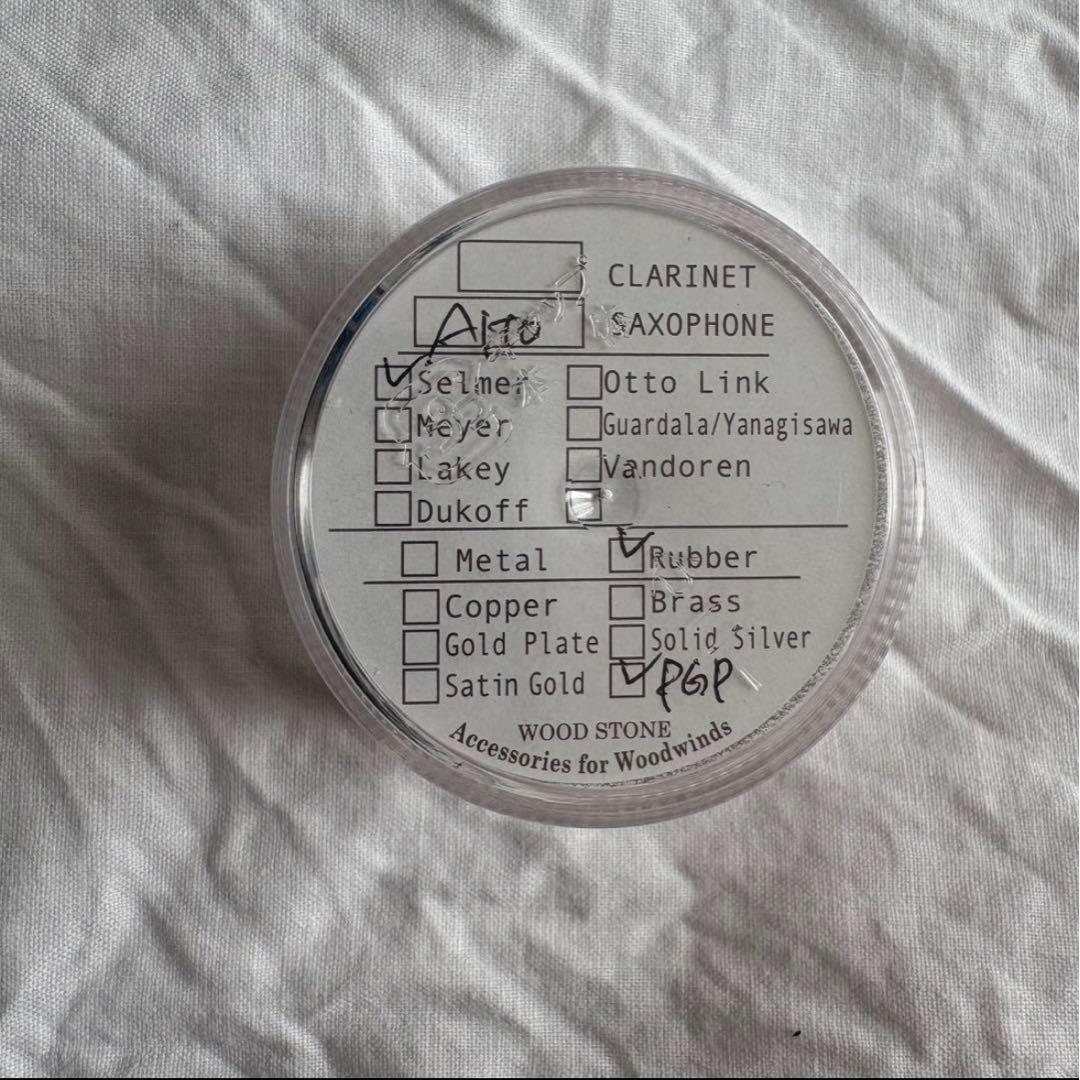 CLARINET
Alto SAXOPHONE
Selmer Otto Link
Meyer Guardala/Yanagisawa
Lakey Vandoren
Dukoff
Metal Rubber
Copper Brass
Gold Plate Solid Silver
Satin Gold PGP
WOOD STONE
Accessories for Woodwinds